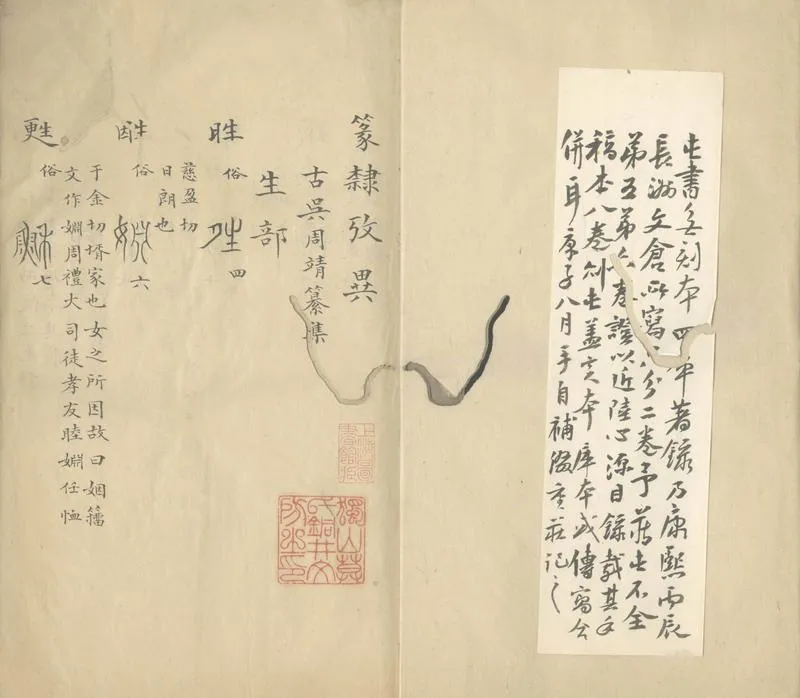 此書無刻本四庫著錄乃康熙丙辰
長洲文倉所寫分二卷予藏此不全
第五第六卷證以近陸心源目錄載其手
稿本八卷則此蓋定本庫本或傳寫合
併耳庚子八月手自補綴重莊記之
篆隸攷異
古吳周靖纂集
生部
俗
四
慈盈切
日朗也
俗
六
于金切壻家也女之所因故曰姻籀
文作婣周禮大司徒孝友睦婣任恤
甦
俗
七
上海圖
書館藏
獨山莫
氏銅井文
房之印